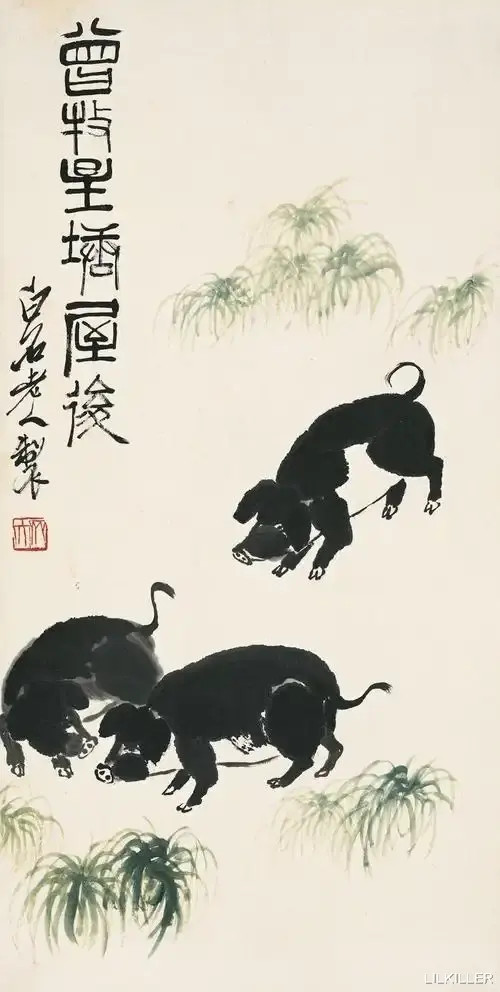 曾牧星塘屋後
白石老人製
LILKILLER